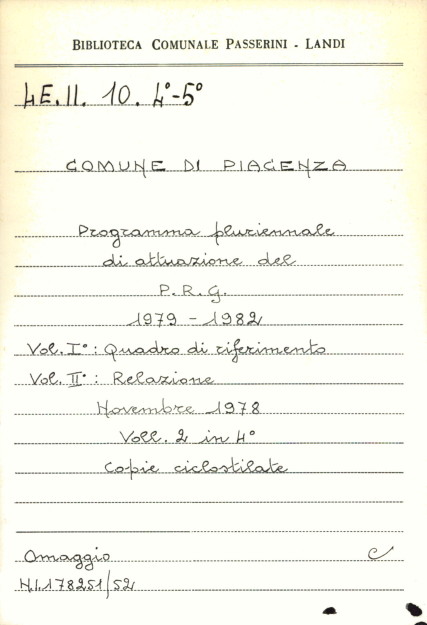 BIBLIOTECA COMUNALE PASSERINI - LANDI
4E.II. 10. 4°-5°
COMUNE DI PIACENZA
Programma pluriennale
di attuazione del
P.R.G.
1979 - 1982
Vol. I°: Quadro di riferimento
Vol. II°: Relazione
Novembre 1978
Voll. 2 in 4°
Copie ciclostilate
Omaggio C
N.I.178251/52